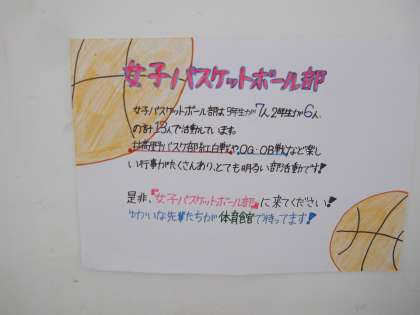 女子バスケットボール部
女子バスケットボール部は3年生が7人2年生が6人、
の計13人で活動しています。
バスケ部紅白戦やOG・OB戦など楽し
い行事がたくさんあり、とても明るい部活動です!
是非、『女子バスケットボール部』に来てください!
ゆかいな先輩たちが体育館で待ってます!